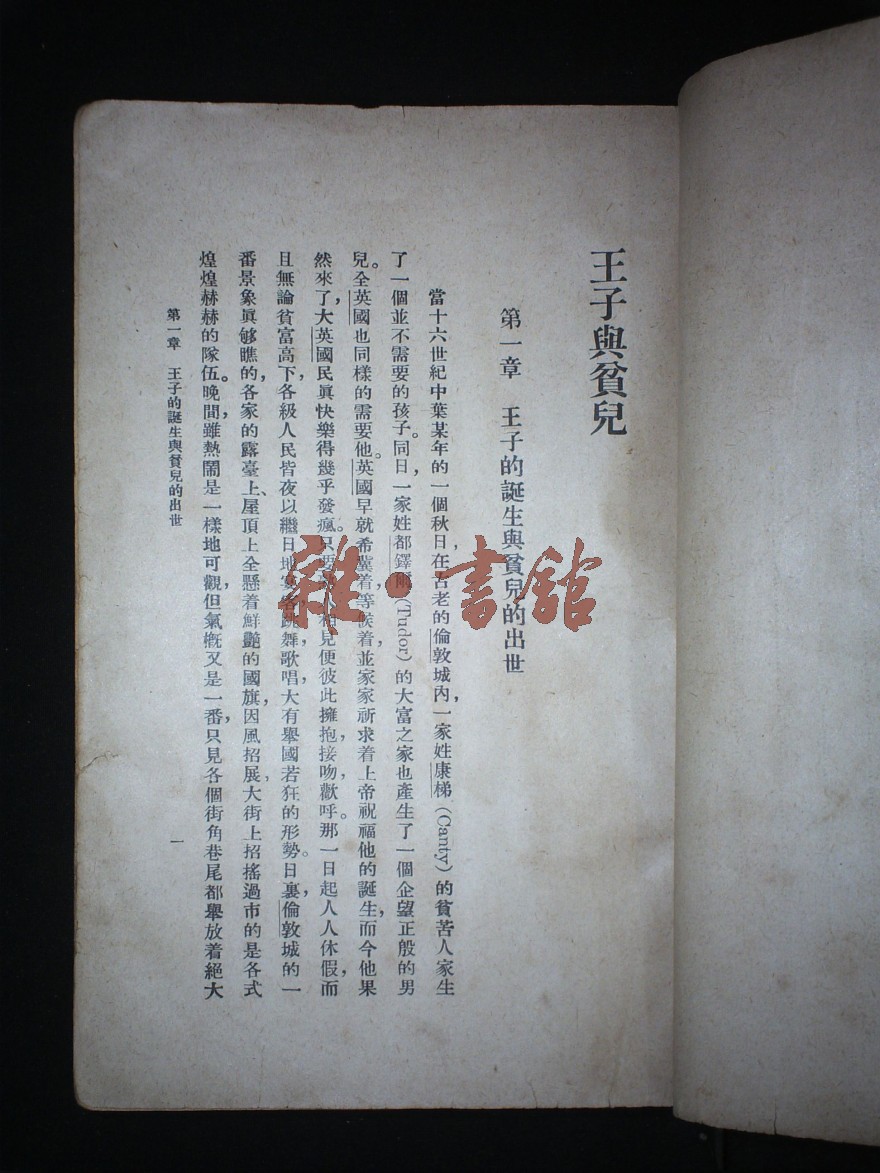 王子與貧兒
第一章　王子的誕生與貧兒的出世
當十六世紀中葉某年的一個秋日，在古老的倫敦城內，一家姓康梯（Canty）的貧苦人家生
了一個並不需要的孩子。同日，一家姓都鐸爾（Tudor）的大富之家也產生了一個企望正殷的男
兒。全英國也同樣的需要他。英國早就希冀着，等候着，並家家祈求着上帝祝福他的誕生，而今他果
然來了，大英國民眞快樂得幾乎發瘋。只要相見便彼此擁抱，接吻，歡呼。那一日起人人休假，而
且無論貧富高下，各級人民皆夜以繼日地宴客，跳舞，歌唱，大有舉國若狂的形勢。日裏，倫敦城的一
番景象眞够瞧的，各家的露臺上、屋頂上全懸着鮮艷的國旗，因風招展，大街上招搖過市的是各式
煌煌赫赫的隊伍。晚間，雖熱鬧是一樣地可觀，但氣概又是一番，只見各個街角巷尾都舉放着絕大
第一章　王子的誕生與貧兒的出世
一
雜·書館